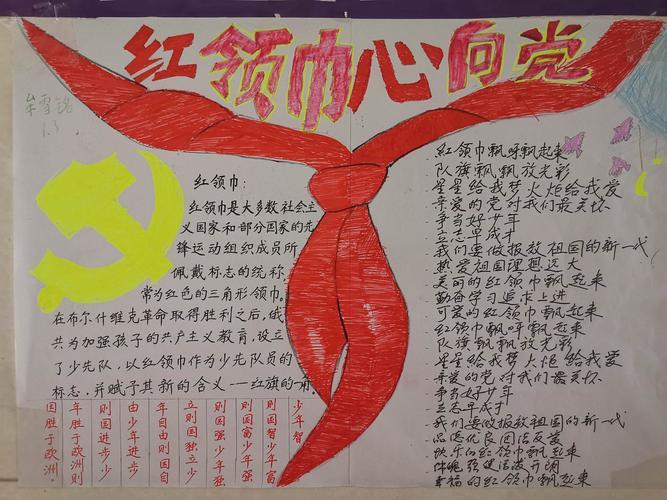 红领巾心向党
牟雪铭
1.3
红领巾:
红领巾是大多数社会主
义国家和部分国家的先
锋运动组织成员所
佩戴标志的统称,
常为红色的三角形领巾。
在布尔什维克革命取得胜利之后,俄
共为加强孩子的共产主义教育,设立
了少先队,以红领巾作为少先队员的
标志,并赋予其新的含义——红旗的一角。
少年智
则国智少年富
则国富少年强
则国强少年独
立则国独立少
年自由则国自
由少年进步
则国进步少
年胜于欧洲则
国胜于欧洲。
红领巾飘呀飘起来
队旗飘飘放光彩
星星给我梦火炬给我爱
亲爱的党对我们最关怀
争当好少年
立志早成才
我们要做报效祖国的新一代
热爱祖国理想远大
美丽的红领巾飘起来
勤奋学习追求上进
可爱的红领巾飘起来
红领巾飘呀飘起来
队旗飘飘放光彩
星星给我梦火炬给我爱
亲爱的党对我们最关怀
争当好少年
立志早成才
我们要做报效祖国的新一代
品德优良团结友爱
快乐的红领巾飘起来
体魄强健活泼开朗
幸福的红领巾飘起来